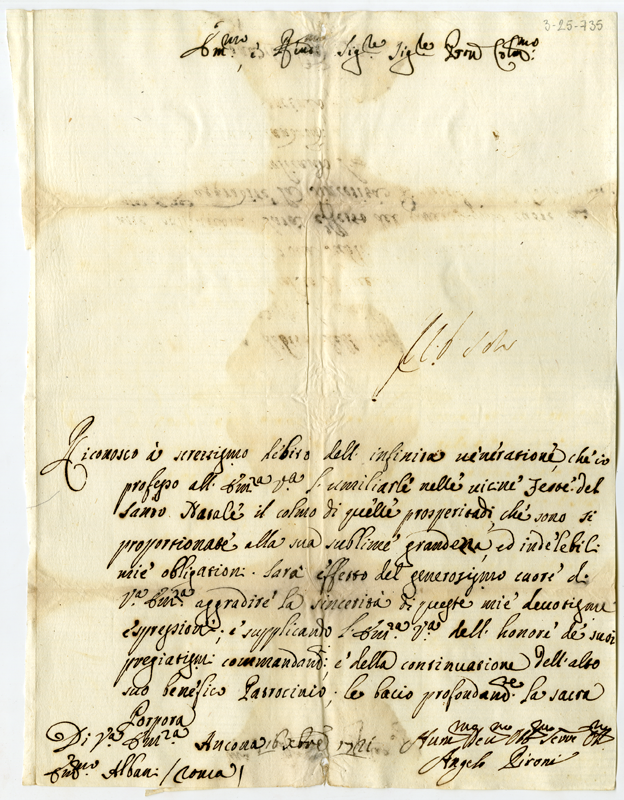 3-25-735
Em.mo e Sig.re Sig.re Pron Col.mo
Riconosco à strettissimo debito dell' infinita veneratione, che io
professo all' Em.za V.a l' umiliarle nelle vicine Feste del
Santo Natale il colmo di quelle prosperitadi, che sono si
proportionate alla sua sublime grandezza, ed indelebili
mie obligationi. Sarà effetto del generosissimo cuore di
V.a Em.za aggradire la sincerità di queste mie devotissime
espressioni: e supplicando l' Em.za V.a dell' honore de suoi
pregiatissimi commandam.ti, e della continuatione dell' alto
suo benefico Patrocinio, le bacio profondam.te la sacra
Porpora
Di V.a Em.za Ancona 16 Xbre 1721
Em.mo Albani / Roma /
Angelo Pironi